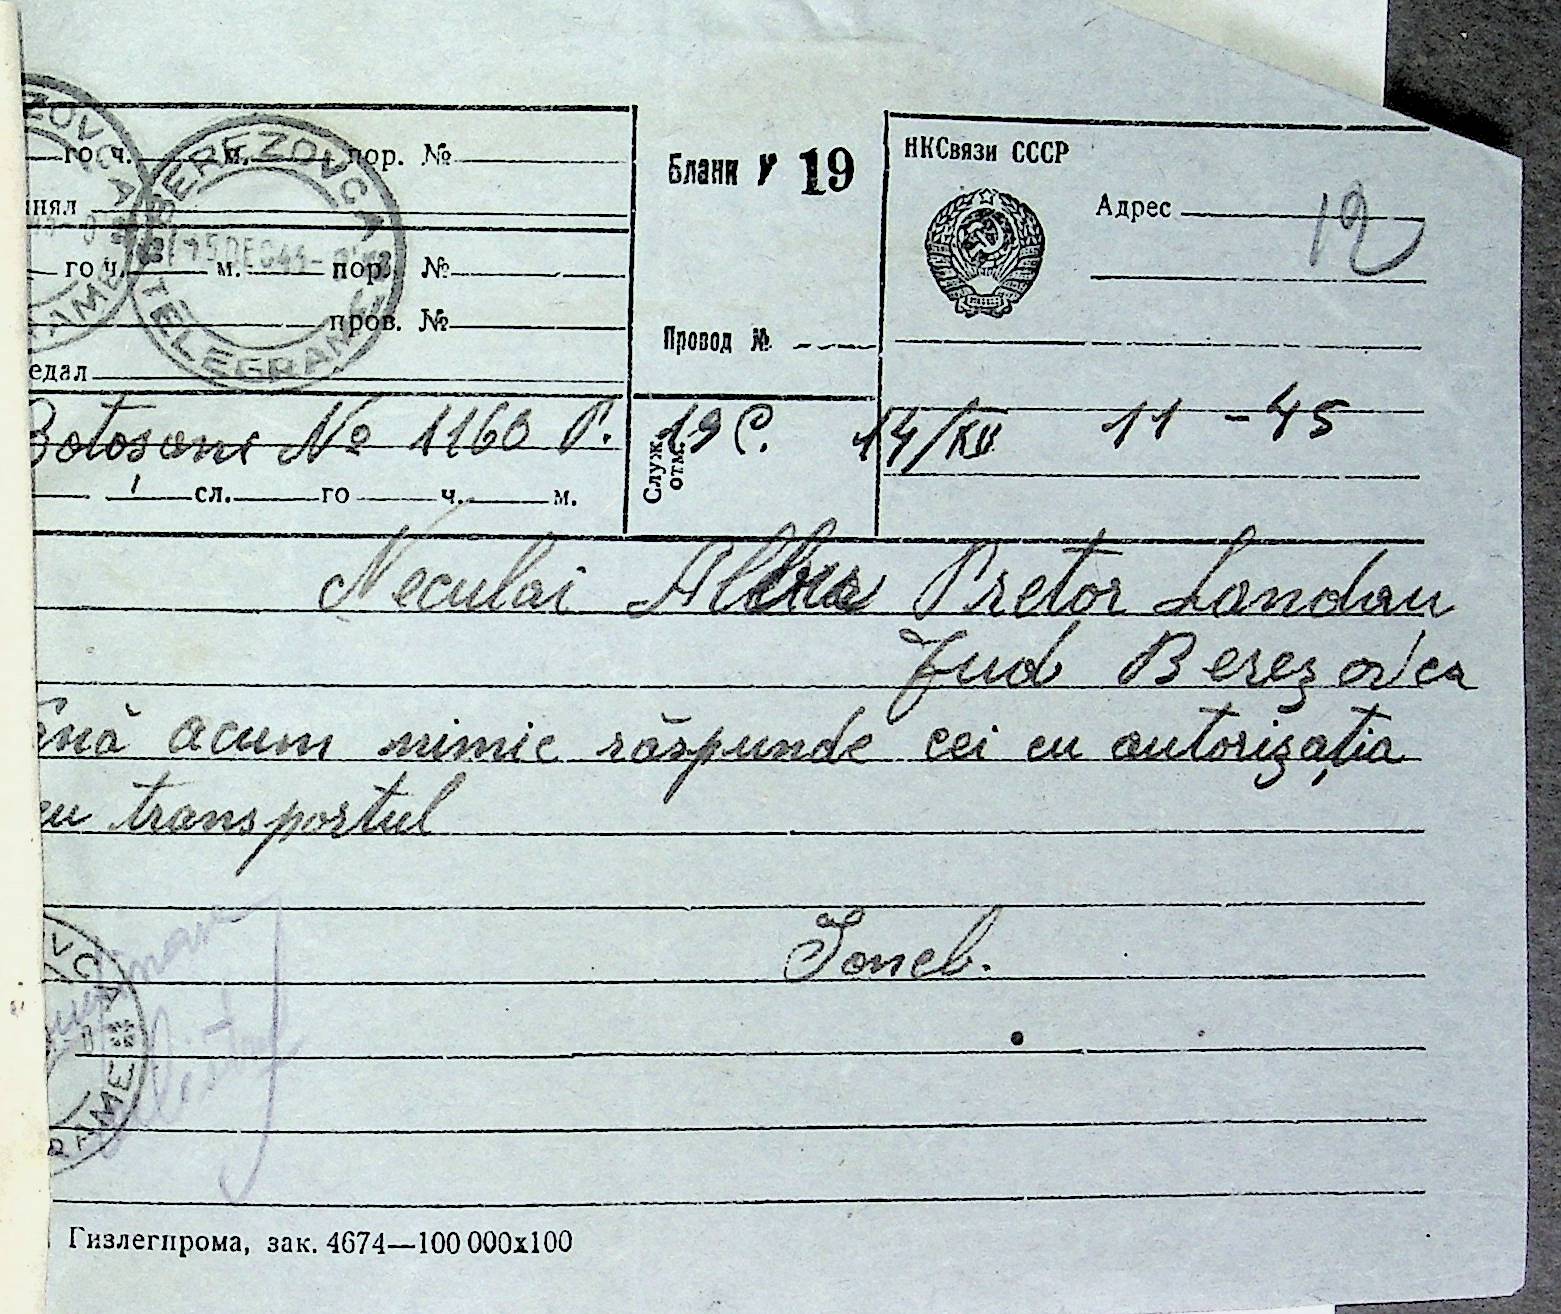 го ч. м. пор. №
Бланк У 19
НКСвязи СССР
Адрес
12
нял
BEREZOVCA
TELEGRAME
15 DEC 41
го ч. м. пор. №
пров. №
Провод №
едал
Botoșani № 1160 P.
19 C. 14/XII 11-45
Служ. отм.
сл. го ч. м.
Neculai Pretor Landau
Jud Berezovca
ână acum nimic răspunde cei cu autorizația
cu transportul
Ionel.
Гизлегпрома, зак. 4674—100 000х100